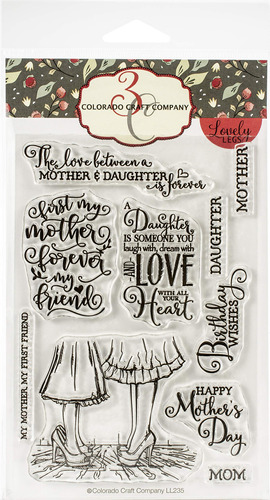 3C
COLORADO CRAFT COMPANY
Lovely
LEGS
The love between a
MOTHER & DAUGHTER
is forever
MOTHER
DAUGHTER
first my
mother
forever
my
friend
A
Daughter
IS SOMEONE YOU
laugh with, dream with
AND LOVE
WITH ALL
YOUR
Heart
Birthday
WISHES
MY MOTHER, MY FIRST FRIEND
HAPPY
Mother's
Day
MOM
©Colorado Craft Company LL235